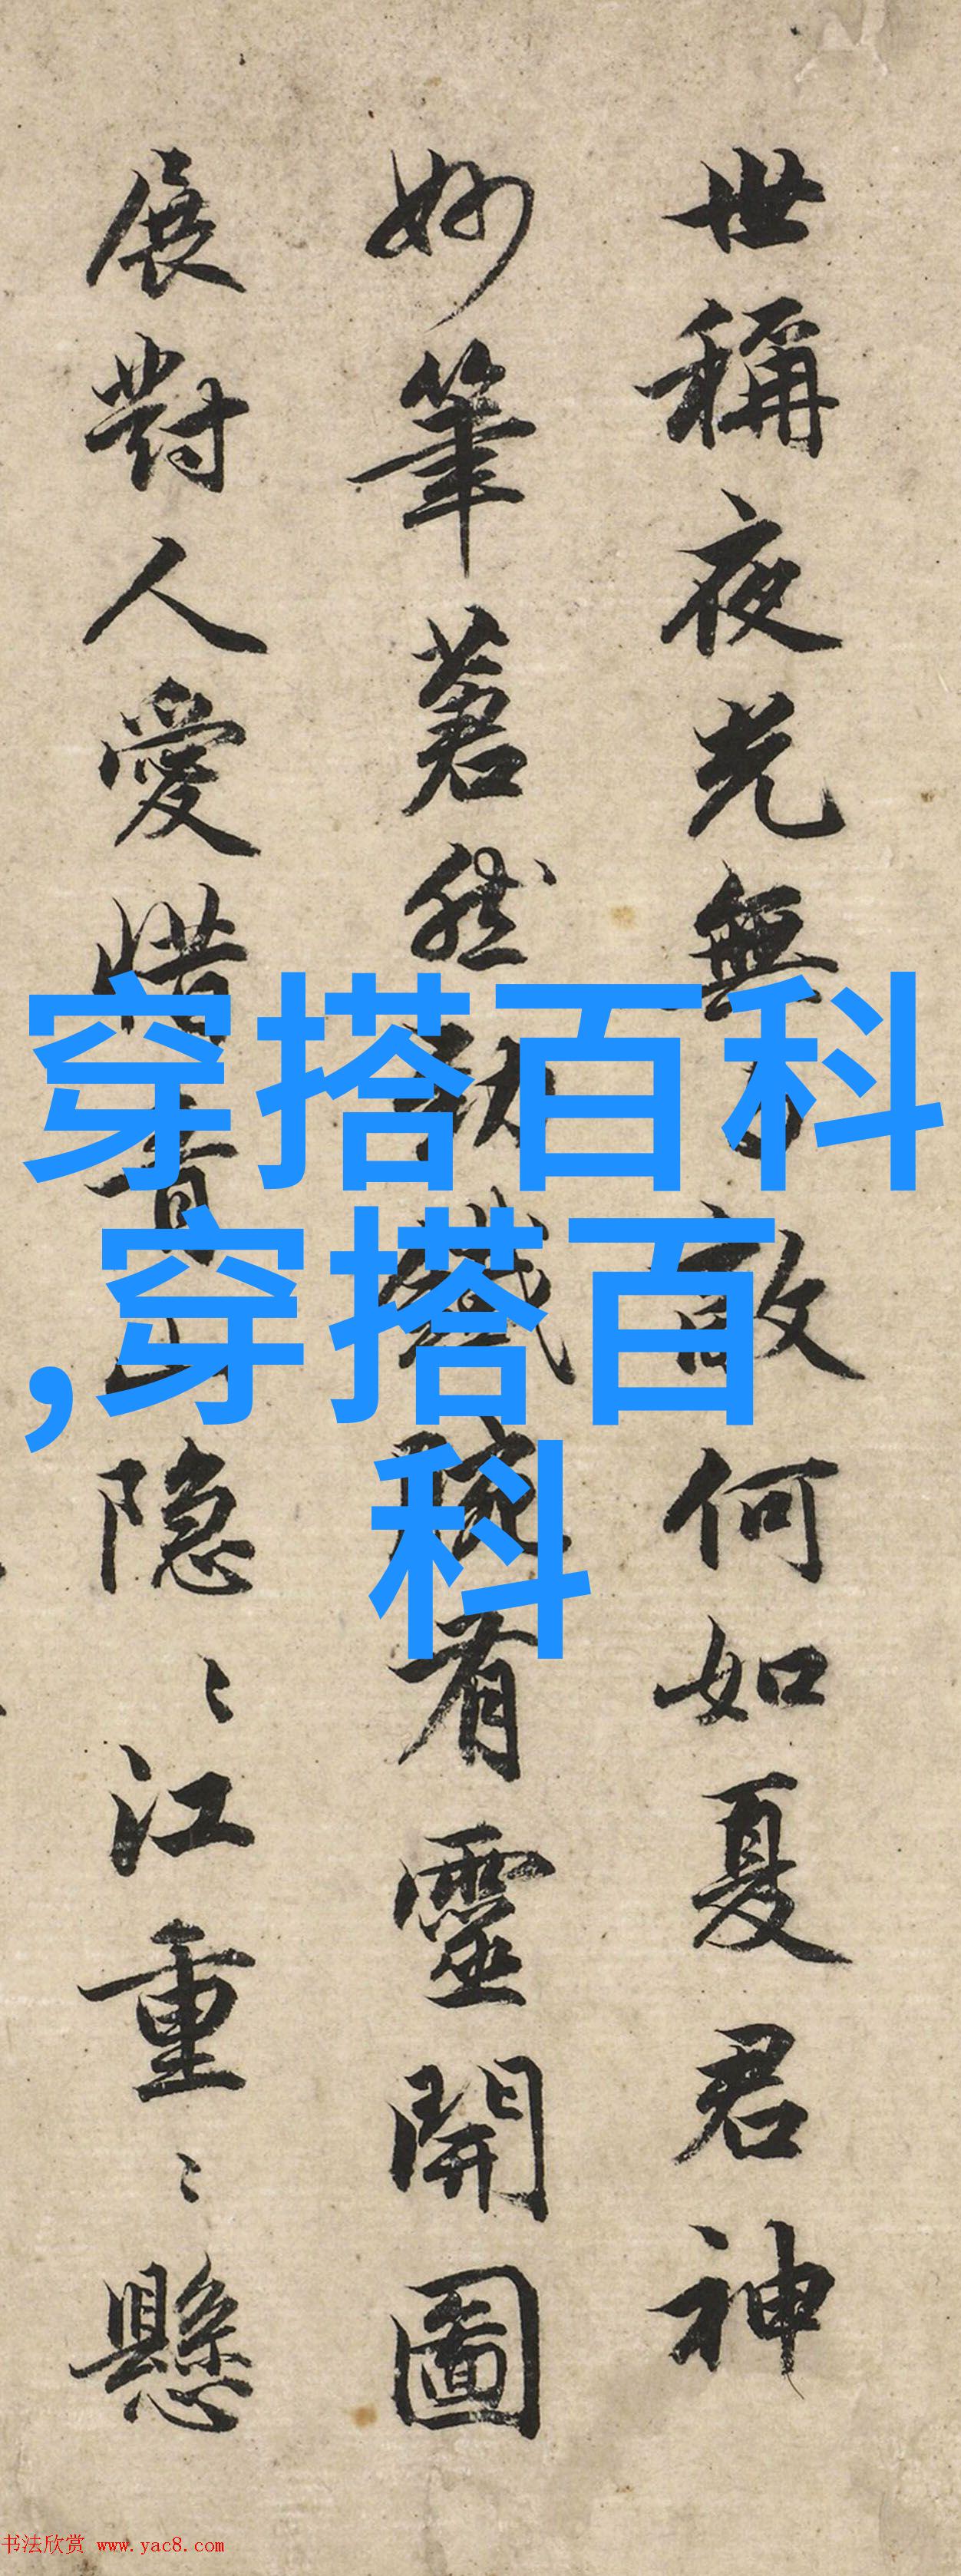 世稱夜光無敵何如夏君神
妙筆蒼然有靈開圖
展對人愛惜青山隐〻江重〻懸
穿搭百科
,穿搭百
科
书法欣赏 www.yac8.com